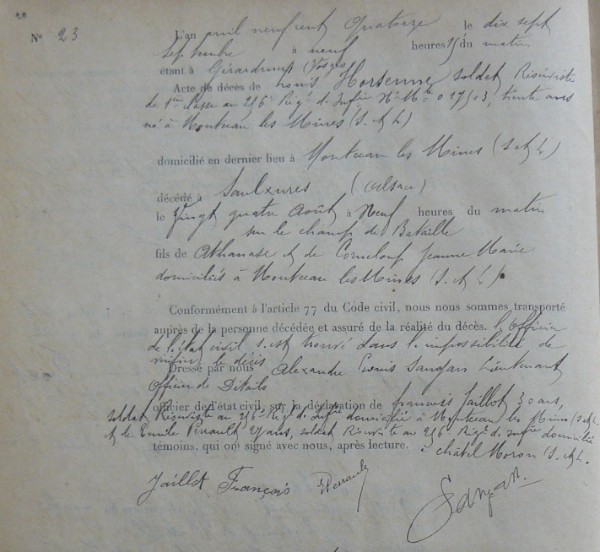 N° 23
L'an mil neufcent Quatorze le dix sept
septembre à neuf heures du matin
étant à Gérardmer (Vosges)
Acte de décès de Horsenne, soldat Réserviste
de 1ere classe au 256e Régt d'Infie No Mle 01703, trente ans
né à Montceau les Mines (S. & L)
domicilié en dernier lieu à Montceau les Mines (S. & L)
décédé à Saulxures (Alsace)
le Vingt quatre Août à Neuf heures du matin
sur le champ de Bataille
fils de Athanase et de Corneloup Jeanne Marie
domiciliés à Montceau les Mines (S. & L).
Conformément à l'article 77 du Code civil, nous nous sommes transporté
auprès de la personne décédée et assuré de la réalité du décès. l'Officier
de l'état civil s'est trouvé dans l'impossibilité de
le décès
Dressé par nous Alexandre Lieutenant
Officier de Détails
officier de l'état civil, sur la déclaration de François Jaillot 30 ans,
soldat Réserviste au 256e Régt d'Infie domicilié à Montceau les Mines (S. & L.
et de Emile ans, soldat Réserviste au 256e Régt d'Infie domicilié
témoins, qui ont signé avec nous, après lecture. à Châtel Moron (S. & L.
Jaillot François